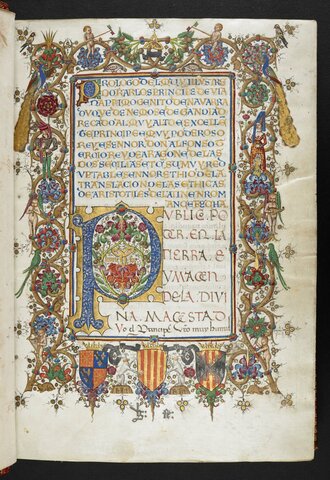 PROLOGO DEL MUY ILLUSTRE
DO CARLOS PRINCIPE DE VIA
NA PRIMOGENITO DE NAVARRA
DUQUE DE NEMOS E DE GANDIA D
REÇADO AL MUY ALTO E EXCELLE
TE PRINCIPE E MUY PODEROSO
REY E SENNOR DON ALFONSO T
ERCIO REY DE ARAGON E DE LAS
DOS SECILIAS ETC SU MUY RED
UPTABLE SENNOR E THIO DE LA
TRANSLACION DE LAS ETHICAS
DE ARISTOTILES DE LATIN EN ROM
ANCE FECHA
PUBLICO PO
DER EN LA
TIERRA E
YMAGEN
DE LA DIVI
NA MAGESTAD
Yo el Principe Vro muy humil